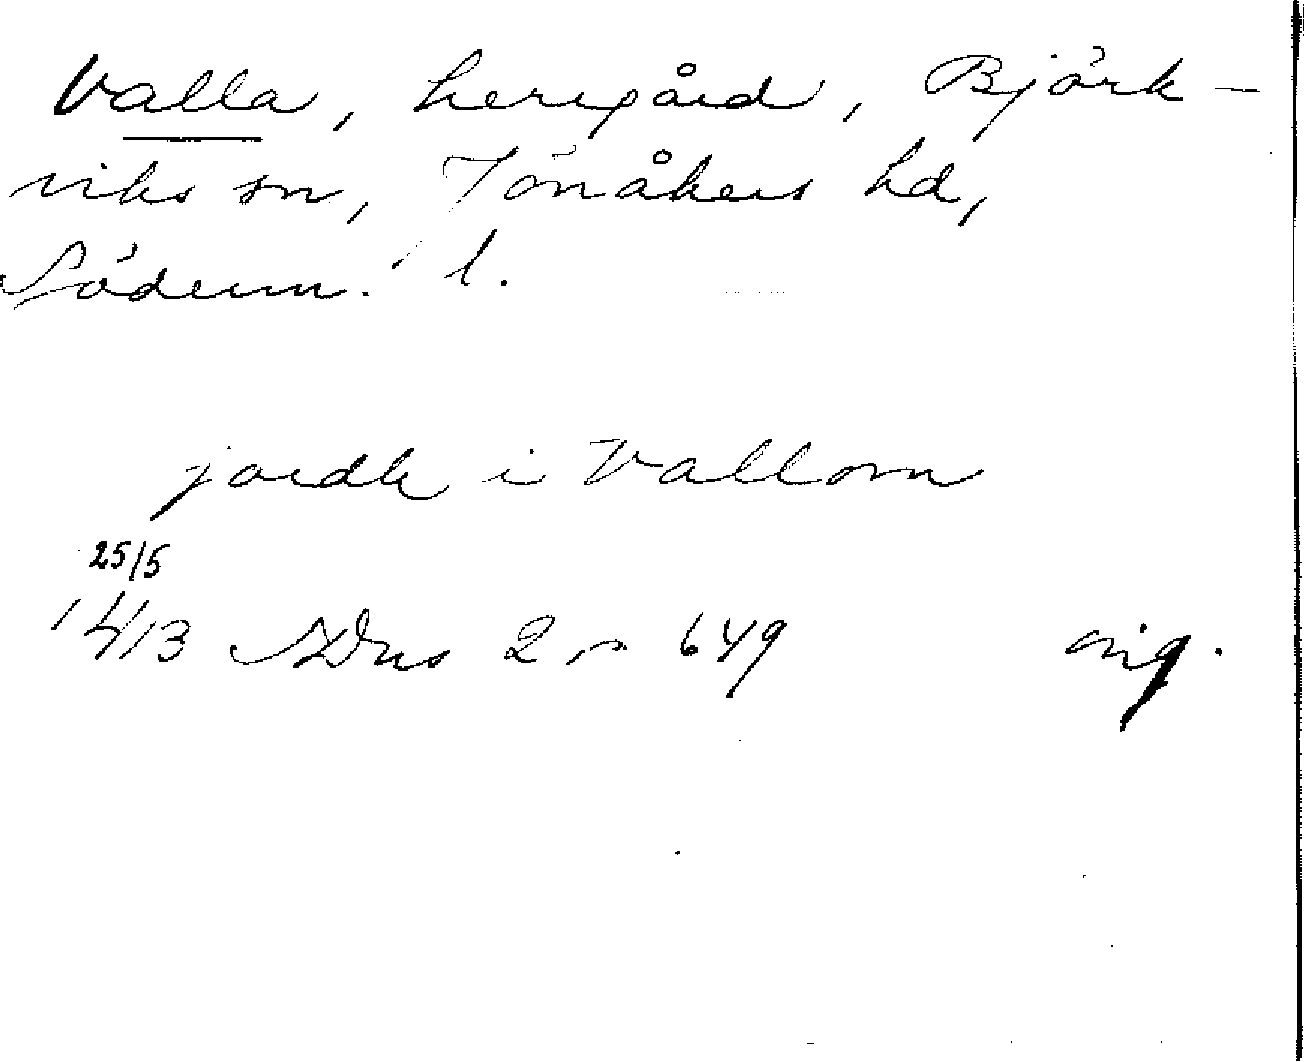 Valla, herrgård, Björk-
viks sn, Jönåkers hd,
Söderm. l.
jordh i Vallom
25/5
1413 SDns 2 s 649 orig.